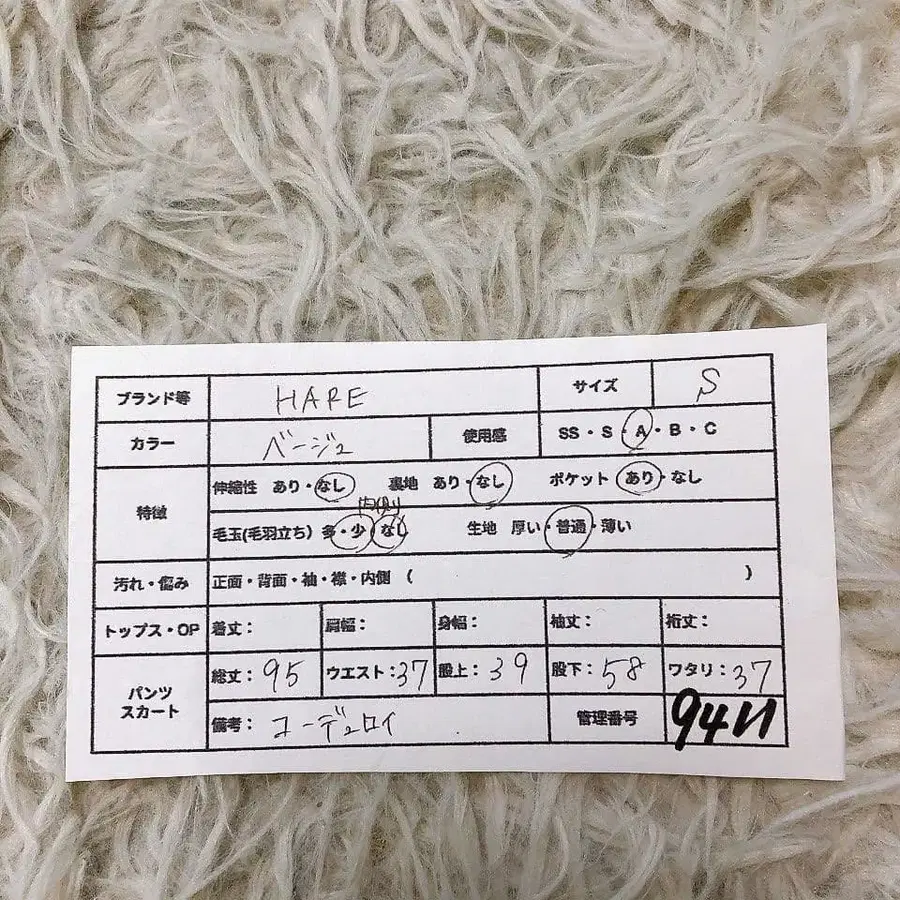 ブランド等 HARE サイズ S
カラー ベージュ 使用感 SS・S・A・B・C
特徴 伸縮性 あり・なし 裏地 あり・なし ポケット あり・なし
内側
毛玉(毛羽立ち) 多・少・なし 生地 厚い・普通・薄い
汚れ・傷み 正面・背面・袖・襟・内側 ( )
トップス・OP 着丈: 肩幅: 身幅: 袖丈: 裄丈:
パンツ スカート 総丈: 95 ウエスト: 37 股上: 39 股下: 58 ワタリ: 37
備考: コーデュロイ 管理番号